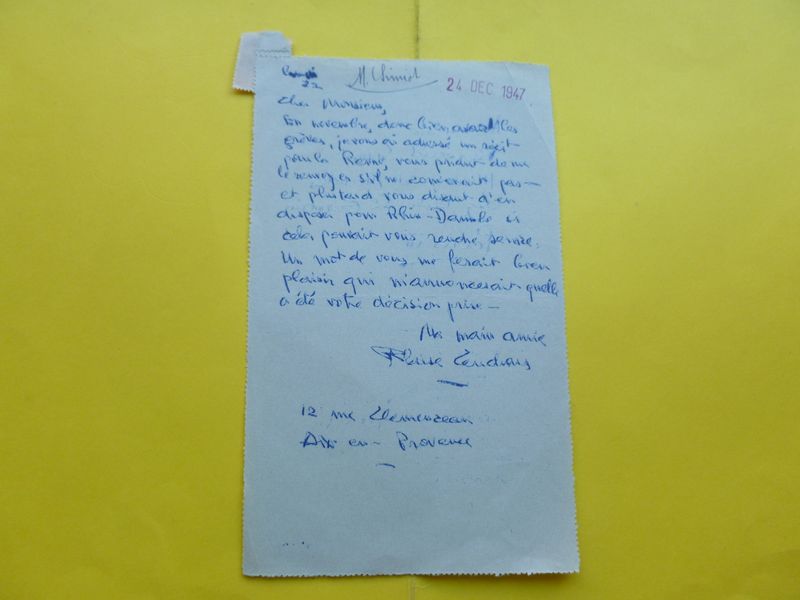 22
24 DEC. 1947
Cher Monsieur,
En novembre, donc bien avant les
grèves, je vous ai adressé un récit
pour la Revue, vous priant de me
le renvoyer s'il ne convenait pas —
et plus tard vous disant d'en
disposer pour Rhin-Danube si
cela pouvait vous rendre service.
Un mot de vous me ferait bien
plaisir qui m'annoncerait quelle
a été votre décision prise —
Ma main amie
12 rue Clemenceau
Aix-en-Provence